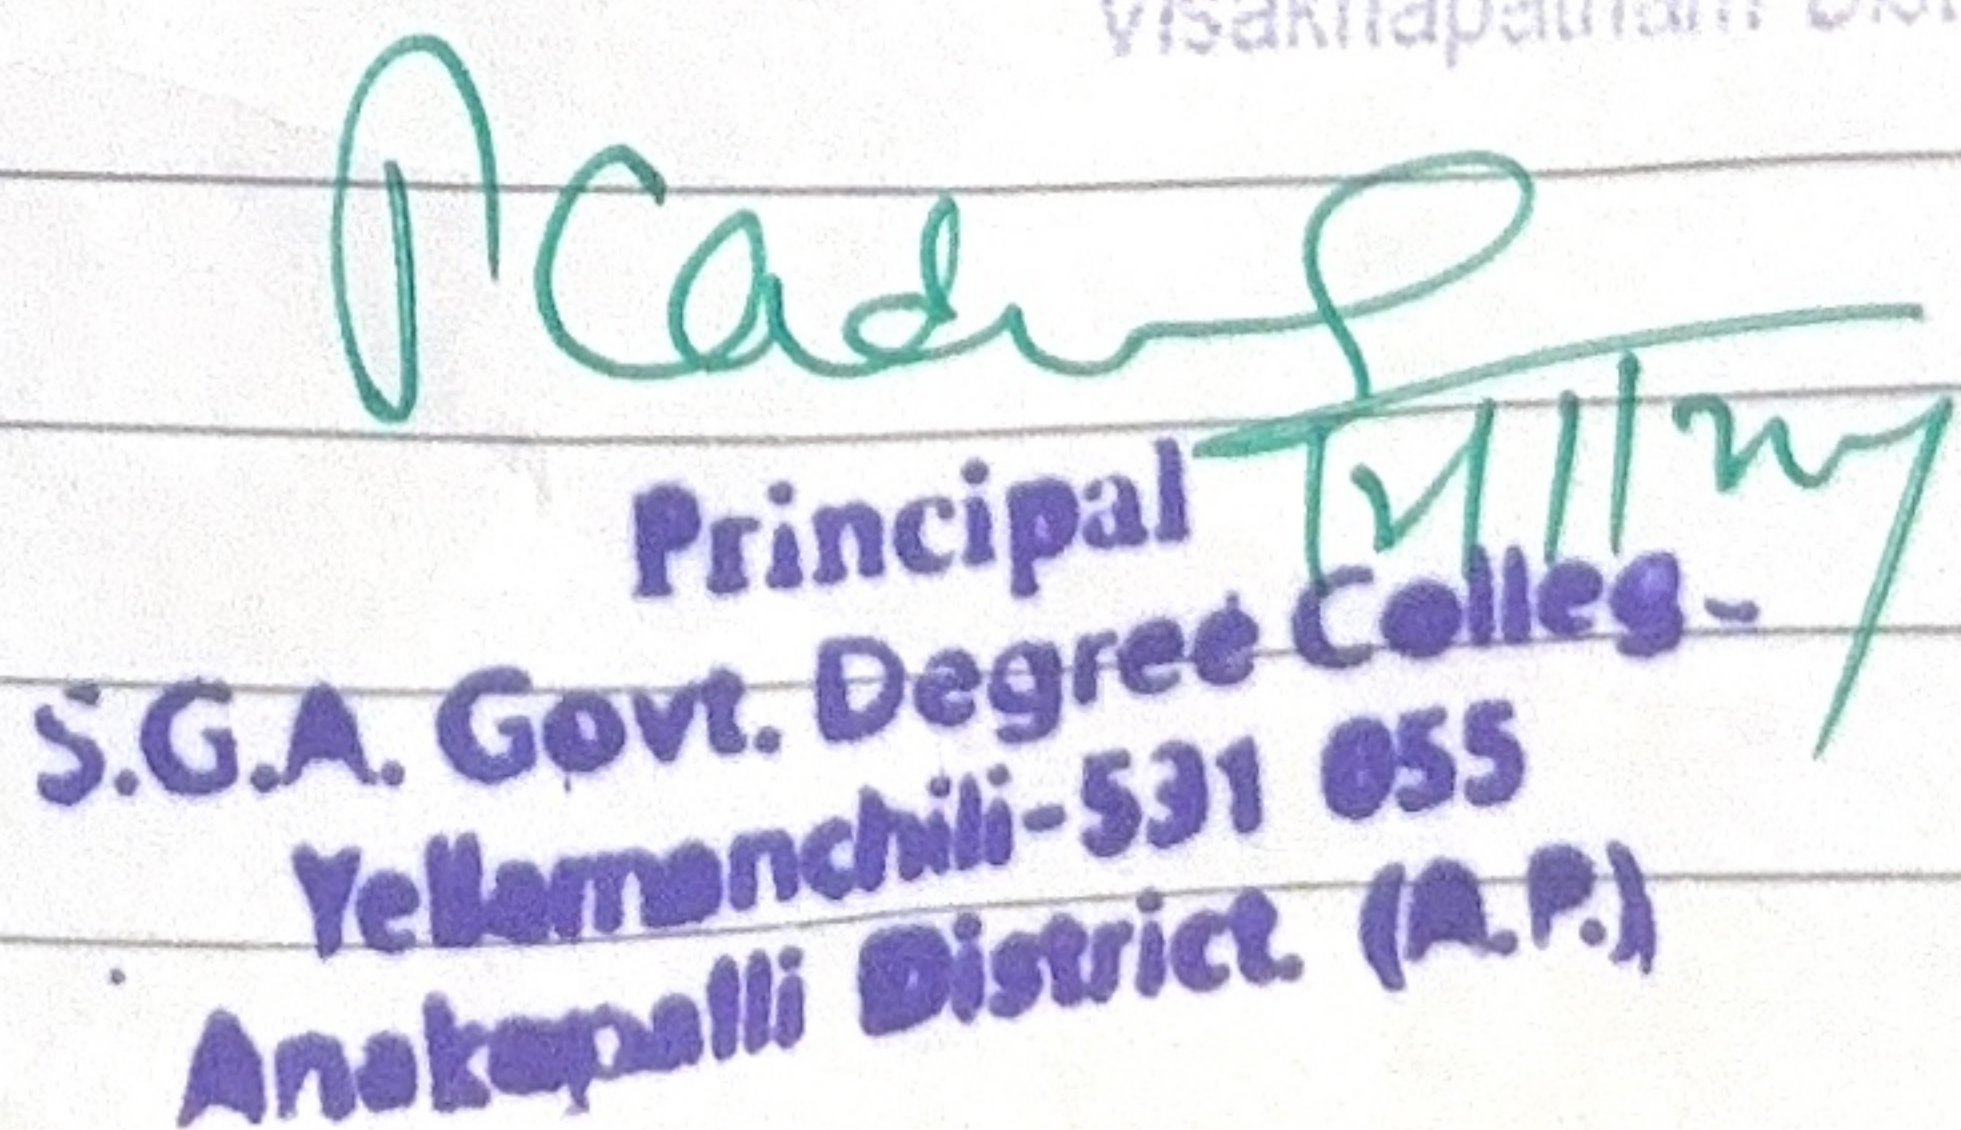 Visakhapatnam
Principal
S.G.A. Govt. Degree Colleg-
Yellamanchili-531 055
Anakapalli District. (A.P.)